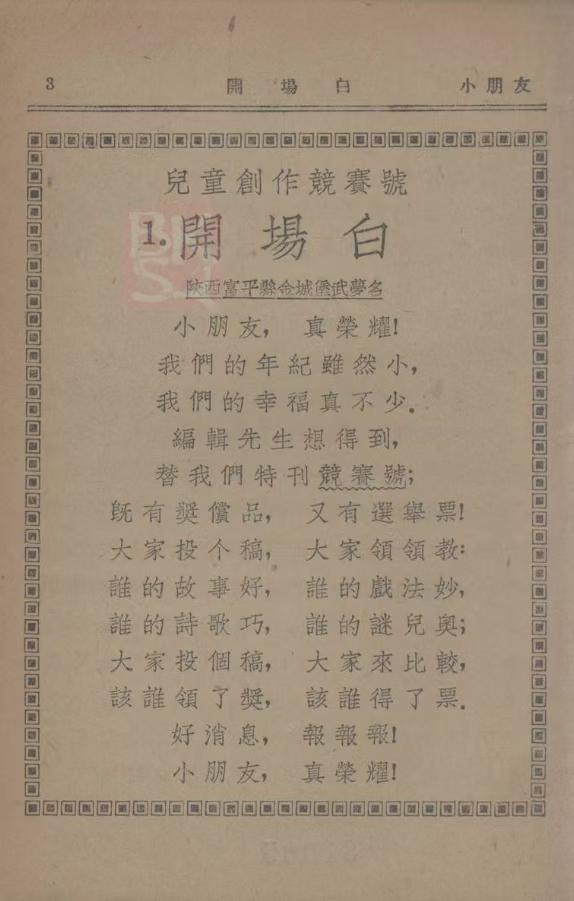 3 開場白 小朋友
兒童創作競賽號
1. 開場白
陝西富平縣金城堡武夢名
小朋友, 真榮耀!
我們的年紀雖然小,
我們的幸福真不少.
編輯先生想得到,
替我們特刊競賽號;
既有獎償品, 又有選舉票!
大家投个稿, 大家領領教:
誰的故事好, 誰的戲法妙,
誰的詩歌巧, 誰的謎兒奧;
大家投個稿, 大家來比較,
該誰領了獎, 該誰得了票.
好消息, 報報報!
小朋友, 真榮耀!